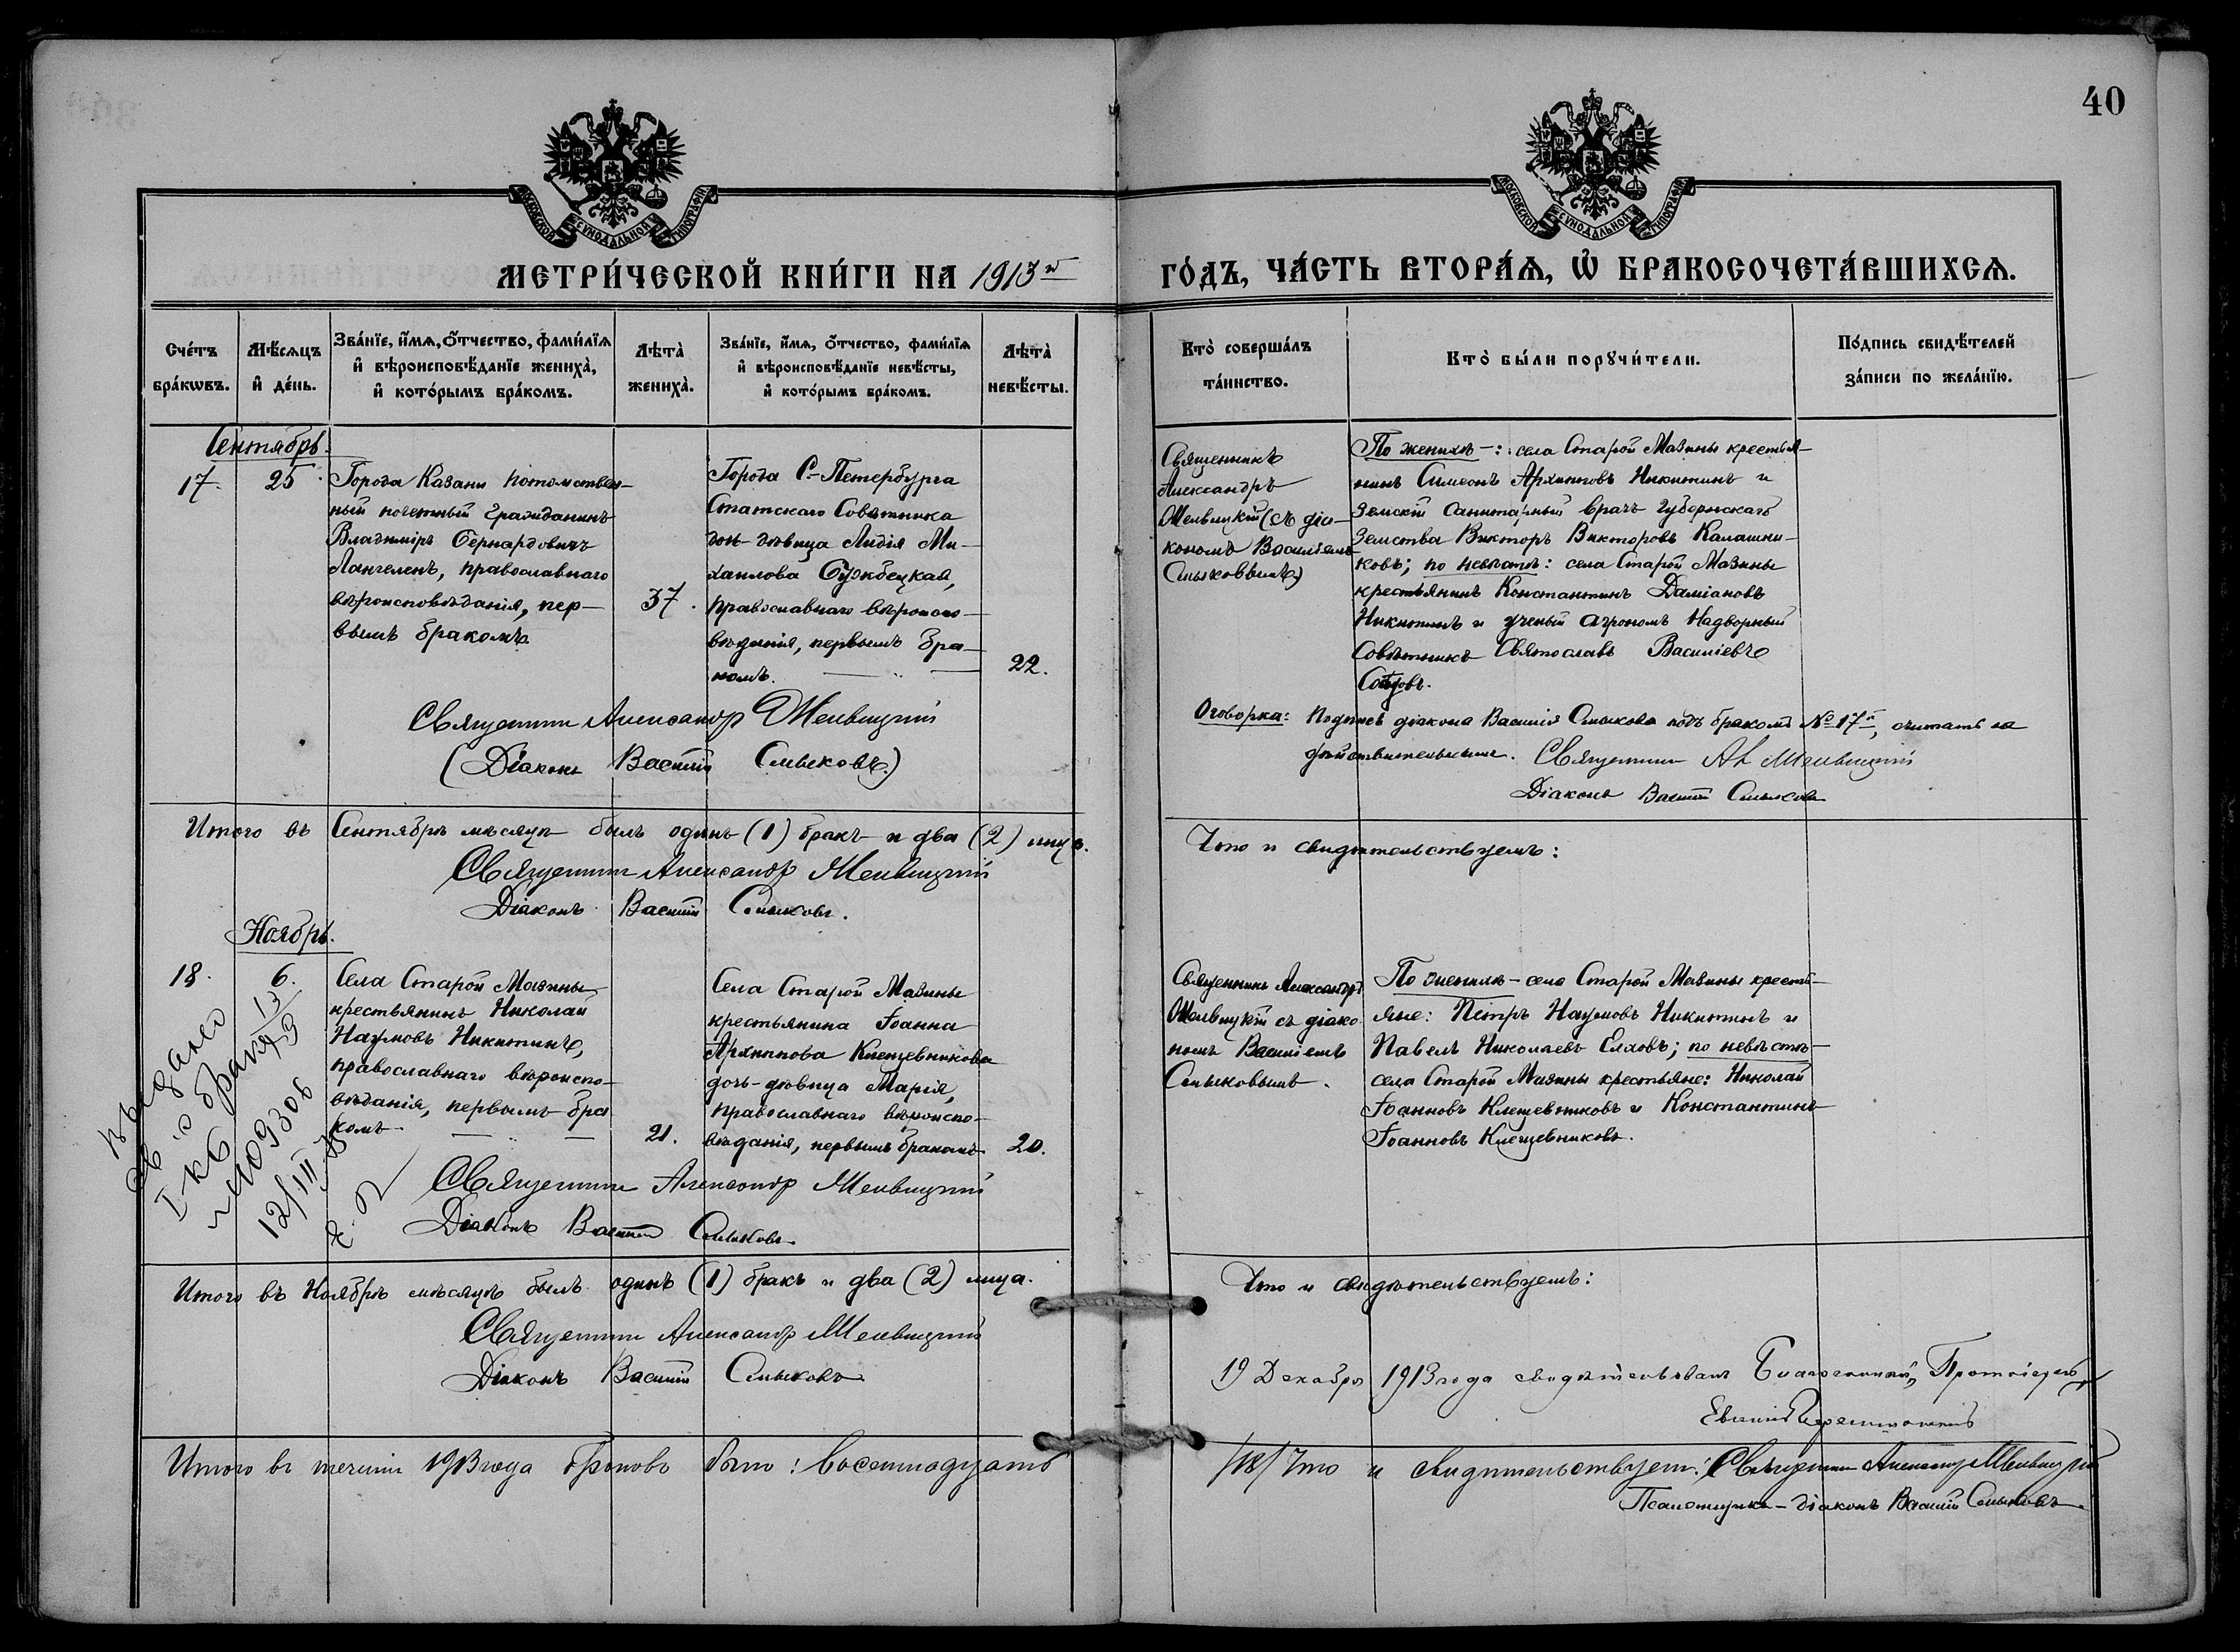 40
МОСКОВСКОЙ СѴНОДАЛЬНОЙ ТИПОГРАФІИ
МОСКОВСКОЙ СѴНОДАЛЬНОЙ ТИПОГРАФІИ
МЕТРИ́ЧЕСКОЙ КНИ́ГИ НА 1913й
ГО́ДЪ, ЧА́СТЬ ВТОРА́Ѧ, Ѽ БРАКОСОЧЕТА́ВШИХСѦ.
Сче́тъ бра́кѡвъ.
Мѣ́сяцъ и҆ де́нь.
Зва́нїе, и҆́мѧ, о҆́тчество, фами́лїѧ
и҆ вѣроисповѣ́данїе жениха̀,
и҆ кото́рымъ бра́комъ.
Лѣта̀ жениха̀.
Зва́нїе, и҆́мѧ, о҆́тчество, фами́лїѧ
и҆ вѣроисповѣ́данїе невѣ́сты,
и҆ кото́рымъ бра́комъ.
Лѣта̀ невѣ́сты.
Кто̀ соверша́лъ
та́инство.
Кто̀ бы́ли порꙋчи́тели.
По́дпись свидѣ́телей
за́писи по жела́нїю.
Сентябрь.
17.
25
Города Казани потомствен-
ный почетный гражданинъ
Владиміръ Бернардовичъ
Лангеленъ, православнаго
вѣроисповѣданія, пер-
вымъ бракомъ
37.
Города С.-Петербурга
Статскаго Совѣтника
дочь-дѣвица Лидія Ми-
хаилова
православнаго вѣроиспо-
вѣданія, первымъ бра-
комъ.
22.
Священникъ
Александръ
(съ діа-
кономъ Василіемъ
Смысковымъ)
По женихѣ -: села Старой Мазины крестья-
нинъ Симеонъ Архиповъ Никитинъ и
Земскій Санитарный врачъ Губернскаго
Земства Викторъ Викторовъ Калашни-
ковъ; по невѣстѣ: села Старой Мазины
крестьянинъ Константинъ Даміановъ
Никитинъ и ученый агрономъ Надворный
Совѣтникъ Святославъ Василіевъ
Священникъ Александр
(Діаконъ Василій Смысковъ.)
Оговорка: Подпись діакона Василія Смыскова подъ бракомъ № 17й, считать за
дѣйствительную. Священникъ Ал
Діаконъ Василій Смысковъ
Итого въ Сентябрѣ мѣсяцѣ былъ одинъ (1) бракъ и два (2) лица.
Что и свидѣтельствуемъ:
Священникъ Александр
Діаконъ Василій Смысковъ.
Ноябрь.
18.
6.
Села Старой Мазины
крестьянинъ Николай
Наумовъ Никитинъ,
православнаго вѣроиспо-
вѣданія, первымъ бра-
комъ
21.
Села Старой Мазины
крестьянина Іоанна
Архипова Клещевникова
дочь-дѣвица Марія,
православнаго вѣроиспо-
вѣданія, первымъ бракомъ
20.
Священникъ Александръ
съ діако-
номъ Василіемъ
Смысковымъ.
По женихѣ - села Старой Мазины кресть-
яне: Петръ Наумовъ Никитинъ и
Павелъ Николаевъ Елховъ; по невѣстѣ-
села Старой Мазины крестьяне: Николай
Іоанновъ Клещевниковъ и Константинъ
Іоанновъ Клещевниковъ.
выдано
св. о браке
I-КБ
№ 109306
Священникъ Александр
Діаконъ Василій Смысковъ.
Итого въ Ноябрѣ мѣсяцѣ былъ одинъ (1) бракъ и два (2) лица.
Что и свидѣтельствуемъ:
Священникъ Александр
Діаконъ Василій Смысковъ
19 Декабря 1913 года свидѣтельствовалъ Благочинный, Протоіерей
Евгеній
Итого въ теченіи 1913 года браковъ было: восемнадцать
/18/ Что и свидѣтельствуемъ: Священникъ Александр
Псаломщикъ - діаконъ Василій Смысковъ.